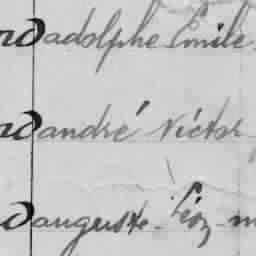 d adolphe Émile
d andré Victor
d auguste Léon